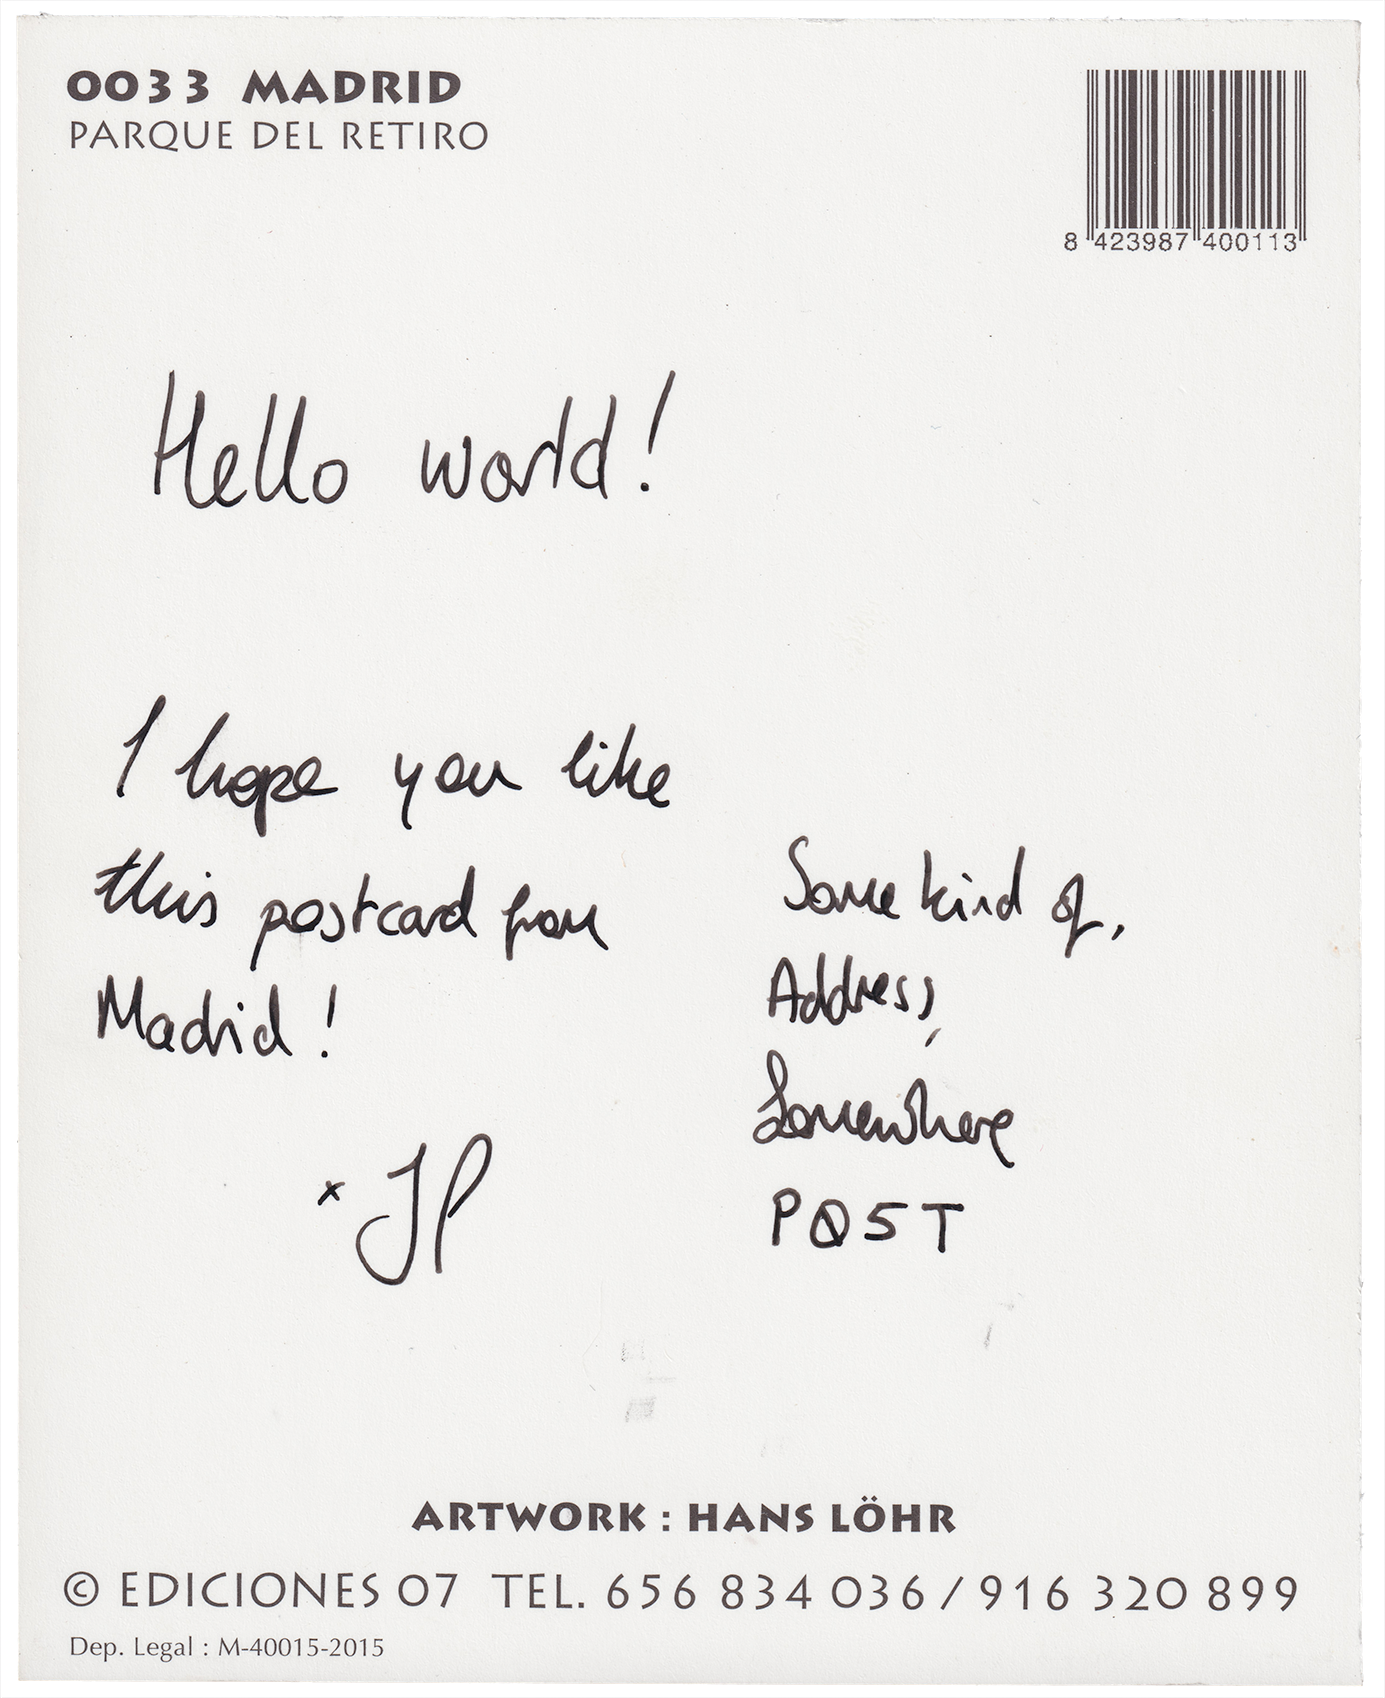 0033 MADRID
PARQUE DEL RETIRO
8 423987 400113
Hello world!
I hope you like
this postcard from
Madrid!
x JP
Some kind of,
Address,
Somewhere
PØ5T
ARTWORK : HANS LÖHR
© EDICIONES 07 TEL. 656 834 036 / 916 320 899
Dep. Legal : M-40015-2015